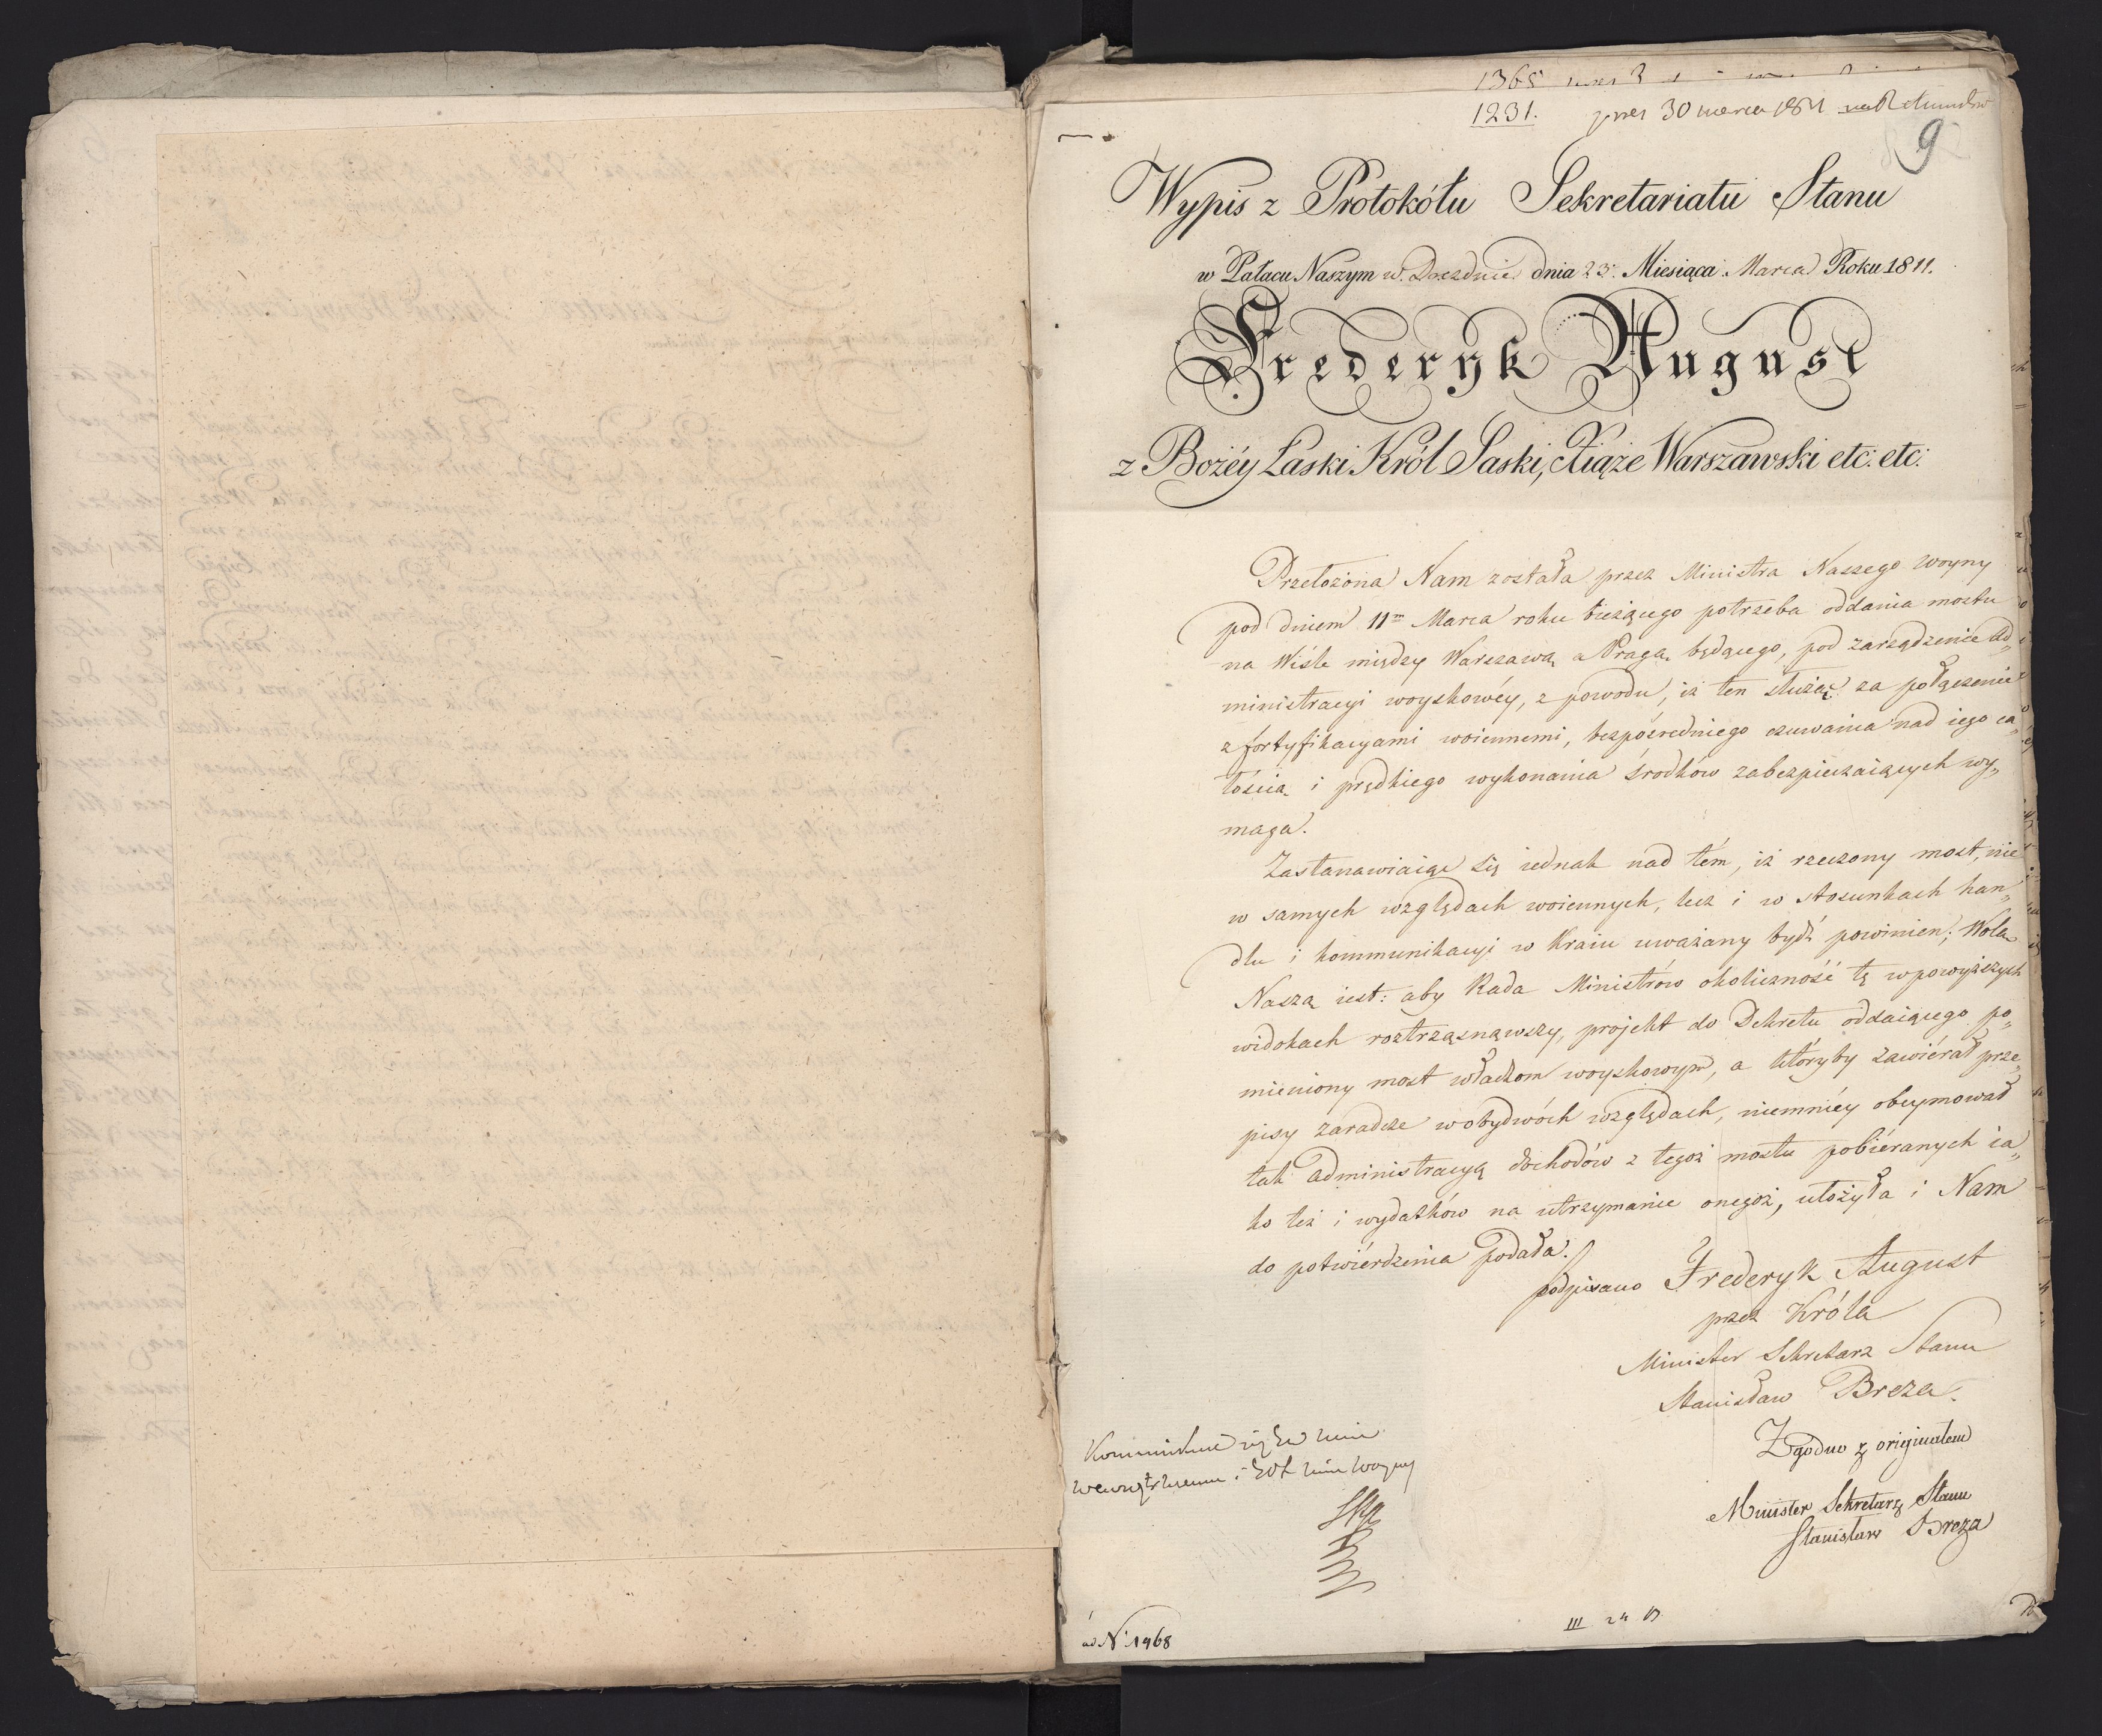 1365
1231. pres 30 marca 1811
9
Wypis z Protokółu Sekretariatu Stanu
w Pałacu Naszym w Dreznie dnia 23. Miesiąca Marca Roku 1811.
Frederyk August
z Bożéy Łaski Król Saski, Xiąże Warszawski etc: etc:
Przełożona Nam została przez Ministra Naszego woyny
pod dniem 11m Marca roku bieżącego potrzeba oddania mostu
na Wiśle między Warszawą a Pragą będącego, pod zarządzenie Ad„
ministracyi woyskowéy, z powodu, iż ten służąc za połączenie
z fortyfikacyami woiennemi, bezpośredniego czuwania nad iego ca„
łością i prędkiego wykonania środków zabezpieczaiących wy„
maga.
Zastanawiaiąc się iednak nad tém, iż rzeczony most, nie
w samych względach woiennych, lecz i w stosunkach han„
dlu i kommunikacyi w Kraiu uważany bydź powinien; Wolą
Naszą iest: aby Rada Ministrów okoliczność tę w powyższych
widokach roztrząsnąwszy, projekt do Dekretu oddaiącego po„
mieniony most władzom woyskowym, a któryby zawiérał prze„
pisy zaradcze w obydwóch względach, niemniéy obeymował
tak administracyą dochodów z tegoż mostu pobiéranych ia„
ko też i wydatków na utrzymanie onegoż, ułożyła i Nam
do potwiérdzenia podała.
podpisano Frederyk August
przez Króla
Minister Sekretarz Stanu
Stanisław Breza.
Zgodno z originałem
Minister Sekretarz Stanu
Stanisław Breza
wewnętrznemu i woyny
ad N. 1468
III